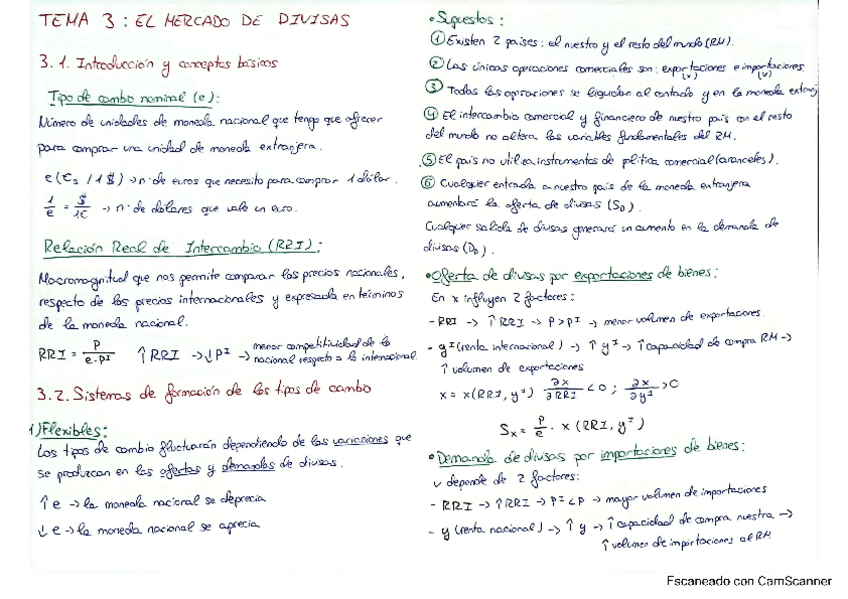 TEMA 3 : EL MERCADO DE DIVISAS
3.1. Introducción y conceptos básicos
Tipo de cambio nominal (e):
Número de unidades de moneda nacional que tengo que ofrecer
para comprar una unidad de moneda extranjera.
e (€s / 1 $) → nº de euros que necesito para comprar 1 dólar.
1/e = $/1€ → nº de dólares que vale un euro.
Relación Real de Intercambio (RRI):
Macromagnitud que nos permite comparar los precios nacionales,
respecto de los precios internacionales y expresada en términos
de la moneda nacional.
RRI = P/e·P^I ↑ RRI → ↓ P^I → menor competitividad de lo
nacional respecto a lo internacional.
3.2. Sistemas de formación de los tipos de cambio
1) Flexibles:
Los tipos de cambio fluctuarán dependiendo de las variaciones que
se produzcan en las ofertas y demandas de divisas.
↑ e → la moneda nacional se deprecia
↓ e → la moneda nacional se aprecia
• Supuestos :
① Existen 2 países: el nuestro y el resto del mundo (RM).
② Las únicas operaciones comerciales son: exportaciones e importaciones.
(x) (v)
③ Todas las operaciones se liquidan al contado y en la moneda extranj
④ El intercambio comercial y financiero de nuestro país con el resto
del mundo no altera las variables fundamentales del RM.
⑤ El país no utiliza instrumentos de política comercial (aranceles).
⑥ Cualquier entrada a nuestro país de la moneda extranjera
aumentará la oferta de divisas (S_D).
Cualquier salida de divisas generará un aumento en la demanda de
divisas (D_D).
• Oferta de divisas por exportaciones de bienes:
En x influyen 2 factores:
- RRI → ↑ RRI → P > P^I → menor volumen de exportaciones.
- y^I (renta internacional) → ↑ y^I → ↑ capacidad de compra RM →
↑ volumen de exportaciones
x = x (RRI, y^I) ∂x/∂RRI < 0 ; ∂x/∂y^I > 0
S_x = P/e · x (RRI, y^I)
• Demanda de divisas por importaciones de bienes:
v depende de 2 factores:
- RRI → ↑ RRI → P^I < P → mayor volumen de importaciones
- y (renta nacional) → ↑ y → ↑ capacidad de compra nuestra →
↑ volumen de importaciones al RM
Escaneado con CamScanner